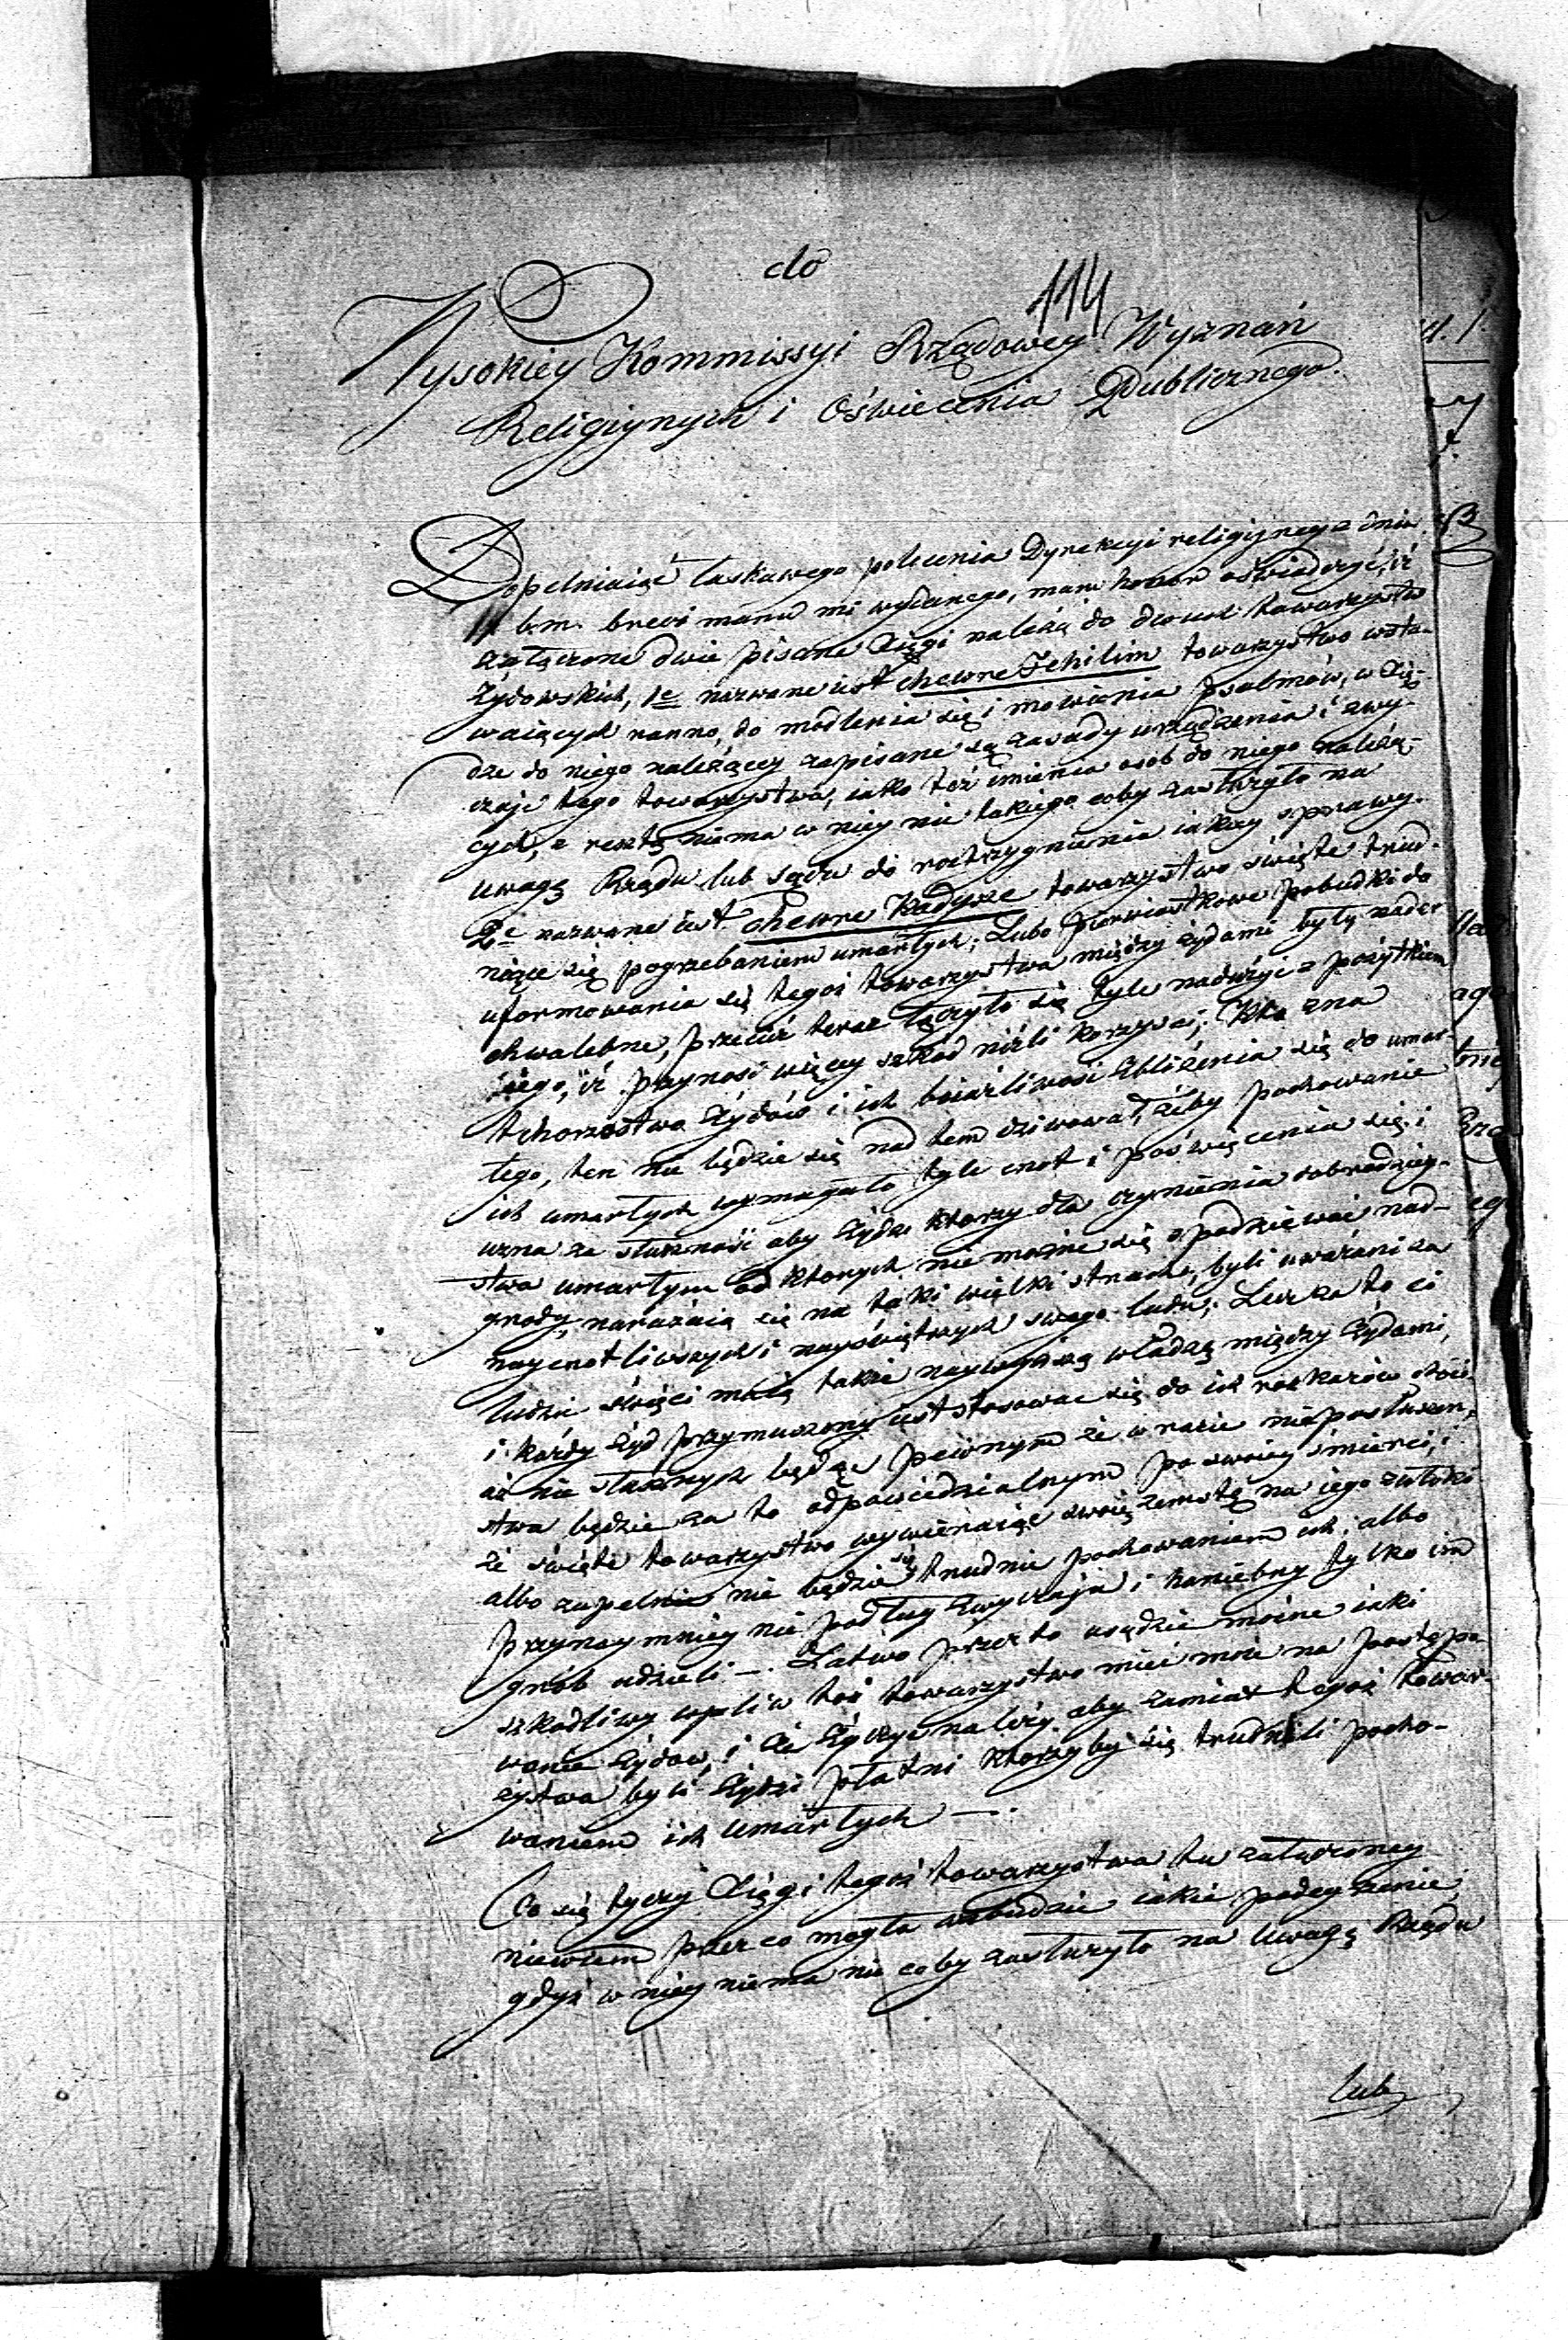 do
114
Wysokiey Kommissyi Rządowey Wyznań
Religiynych i Oświecenia Publicznego.
Dopełniaiąc łaskawego polecenia Dyrekcyi religiyney z dnia
b.m. brevi manu mi wydanego, mam honor oświadczyć, iż
załączone dwie pisane Xięgi należą do dwuch towarzystw
Żydowskich, 1e nazwane iest chewre Tehilim towarzystwo wsta-
waiących ranno, do modlenia się i mówienia psalmów, w Xię-
dze do niego należącey zapisane są zasady urządzenia i zwy-
czaje tego towarzystwa, iako też imiona osob do niego należą-
cych, z resztą niema w niey nic takiego coby zasłużyło na
uwagę Rządu lub Sądu do roztrzygnienia iakiey sprawy.
2e nazwane iest chewre Kadysze towarzystwo święte trud-
niące się pogrzebaniem umarłych; Lubo pierwiastkowe pobudki do
uformowania się tegoż towarzystwa między żydami były nader
chwalebne, przecież teraz łączyło się tyle nadużyć z pożytkiem
iego, iż przynosi więcey szkod niżli korzyści; Kto zna
tchorzostwo Żydów i ich boiaźliwość zbliżenia się do umar-
łego, ten nie będzie się nad tem dziwował, żeby pochowanie
ich umarłych wymagało tyle cnot i poświęcenia się i
uzna za słuszność aby Żydzi ktorzy dla czynienia dobrodziey-
stwa umarłym od ktorych nie można się spodziewać nad-
grody, narażaią się na taki wielki strach, byli uważani za
naycnotliwszych i nayświętszych swego ludu; Lecz za to ci
ludzie święci maią także naywyższą władzę między Żydami,
i każdy Żyd przymuszony iest stosować się do ich rozkazów choci-
aż nie słusznych będąc pewnym że w razie nieposłuszeń-
stwa będzie za to odpowiedzialnym po swoiey śmierci, i
że święte towarzystwo wywieraiąc swoię zemstę na iego zwłoki
albo zupełnie nie będzie się trudnić pochowaniem ich, albo
przynaymniey nie podług zwyczaju i haniebny tylko im
grób udzieli —. Łatwo przeto usądzić można iaki
szkodliwy wpływ toż towarzystwo mieć może na postępo-
wanie Żydów, i że życzyć należy aby zamiast tegoż towar-
zystwa byli Żydzi płatni ktorzyby się trudnili pocho-
waniem ich umarłych —.
Co się tyczy Xięgi tegoż towarzystwa tu załączoney
niewiem przez co mogła wzbudzić iakie podeyrzenie,
gdyż w niey niema nic coby zasłużyło na uwagę Rządu
lub